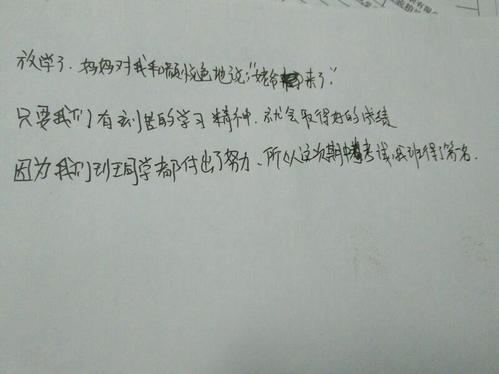 放学了.妈妈对我和颜悦色地说:"姥爷来了."
只要我们有刻苦的学习精神.就会取得好的成绩
因为我们班同学都付出了努力、所以这次期中考试,我班得了第一名.